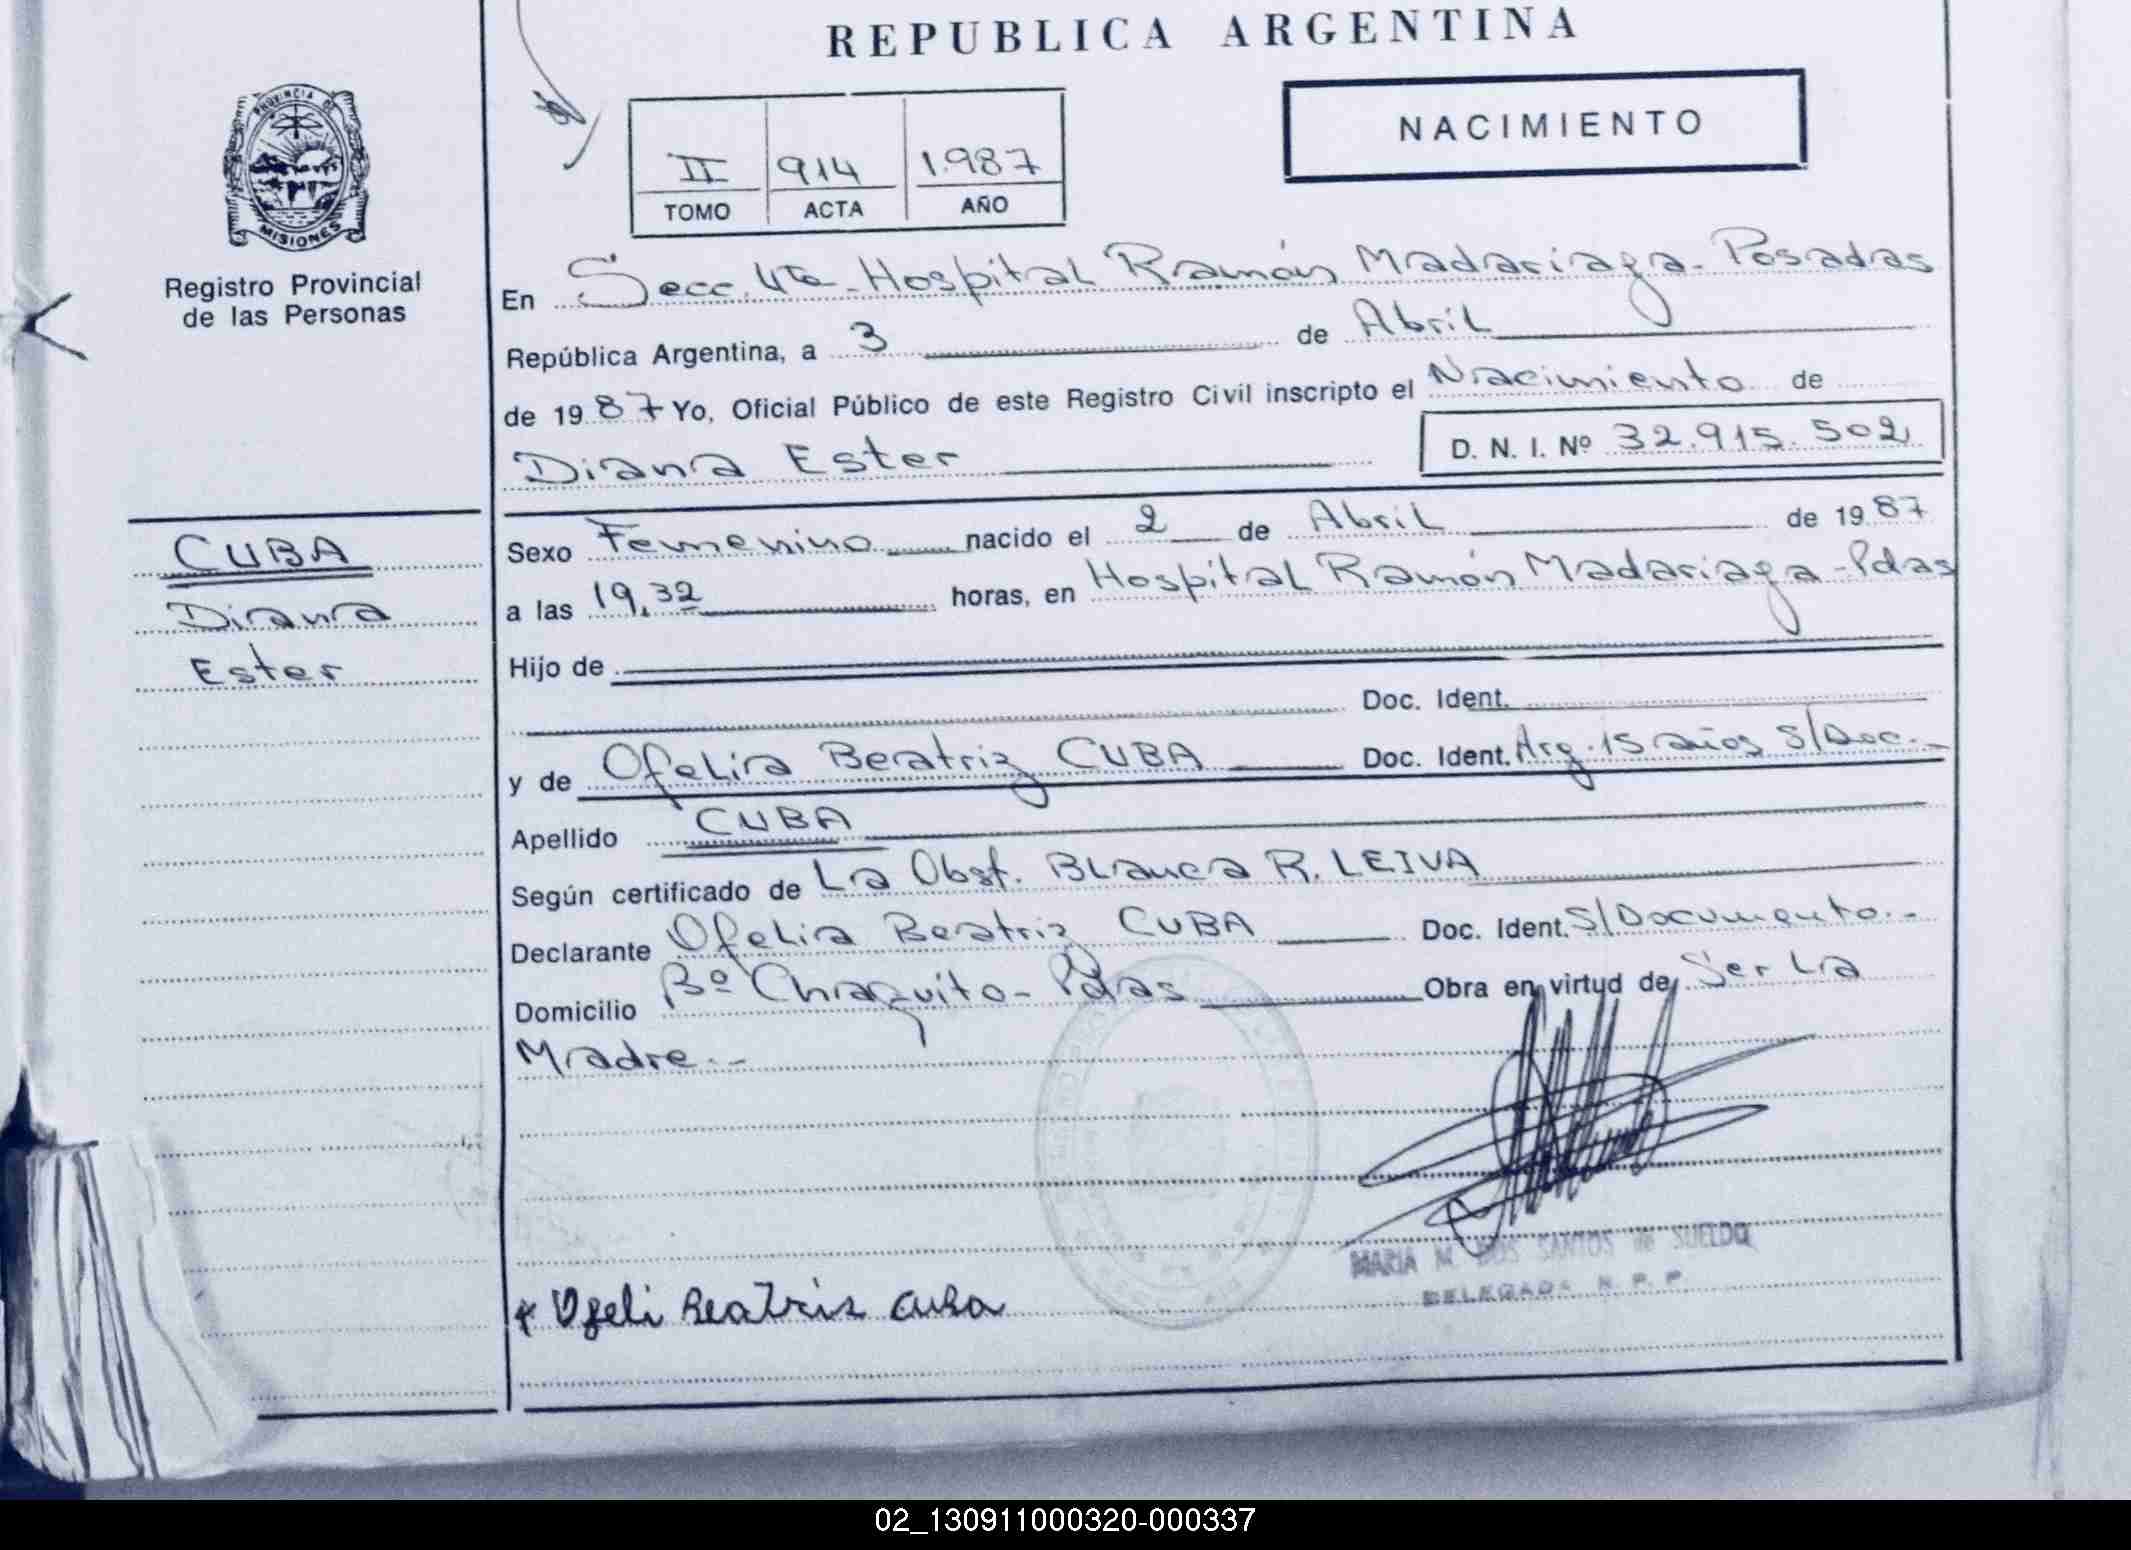 REPUBLICA ARGENTINA
NACIMIENTO
II 914 1.987
TOMO ACTA AÑO
PROVINCIA DE
MISIONES
Registro Provincial
de las Personas
En Secc. 4ta - Hospital Ramón Madariaga - Posadas
República Argentina, a 3 de Abril
de 1987 Yo, Oficial Público de este Registro Civil inscripto el Nacimiento de
Diana Ester D. N. I. Nº 32.915.502
CUBA
Diana
Ester
Sexo Femenino nacido el 2 de Abril de 1987
a las 19,32 horas, en Hospital Ramón Madariaga - Pdas
Hijo de
Doc. Ident.
y de Ofelia Beatriz CUBA Doc. Ident. Arg. 15 años S/Doc.-
Apellido CUBA
Según certificado de La Obst. Blanca R. LEIVA
Declarante Ofelia Beatriz CUBA Doc. Ident. S/Documento.-
Domicilio Bº Chaquito - Pdas Obra en virtud de Ser La
Madre.-
MARIA M. DOS SANTOS de SUELDO
DELEGADA R. P. P.
x Ofeli Beatriz Cuba
02_130911000320-000337